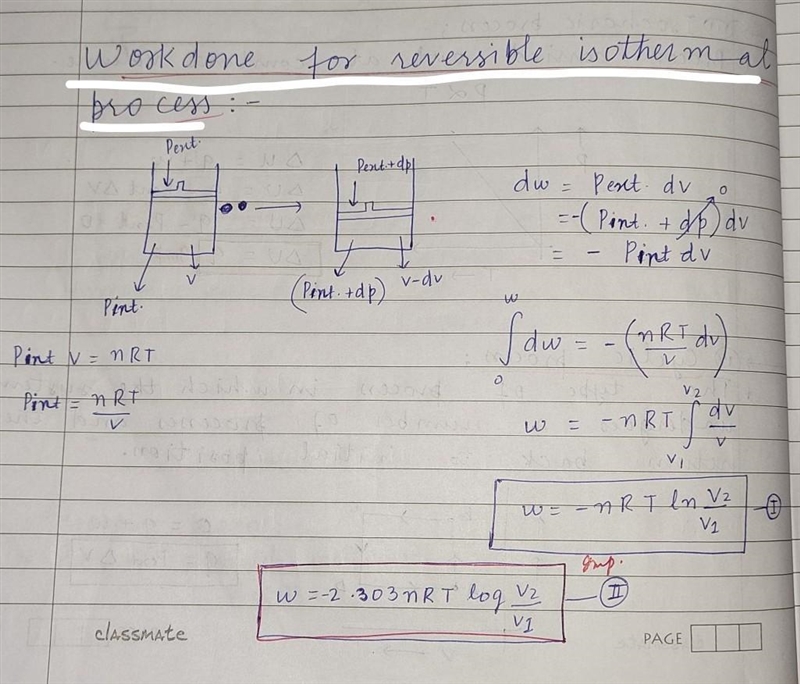 Workdone for reversible isothermal
process :-
Pext.
Pext+dp
V
Pint.
(Pint.+dp)
V-dv
dw = Pext. dv
=-(Pint. + dp)dv
0
= - Pint dv
Pint V = nRT
Pint = nRT/V
∫₀ʷ dw = -(nRT/V dv)
w = -nRT ∫ᵥ₁ᵛ² dv/v
w = -nRT ln V2/V1 — Ⅰ
Imp.
w = -2.303nRT log V2/V1 — Ⅱ
classmate
PAGE